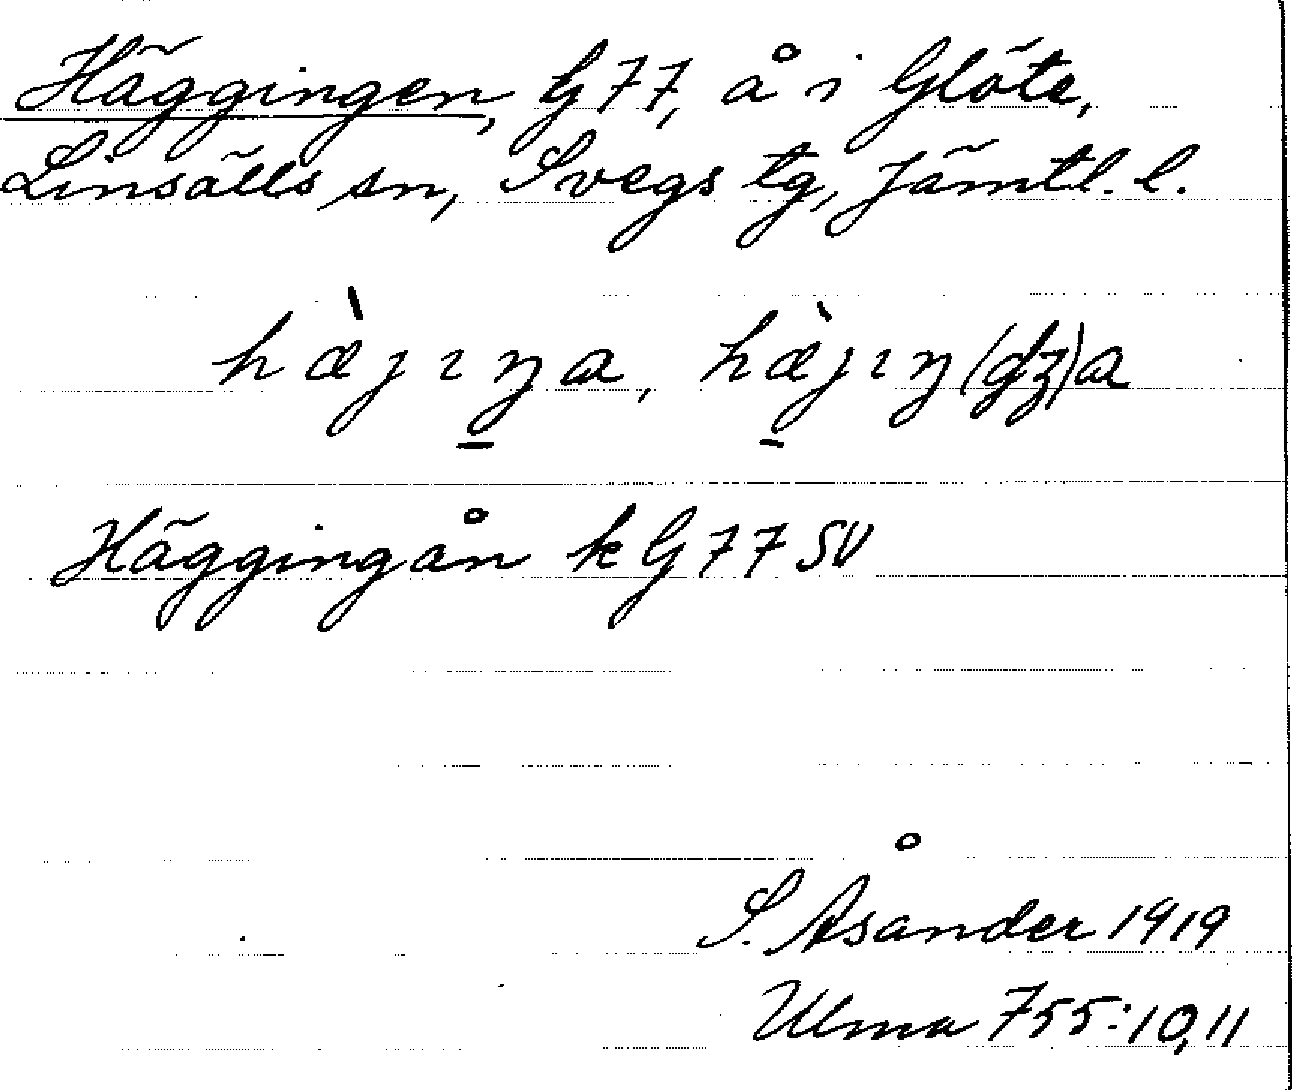 Häggingen, G77, å i Glöte,
Linsälls sn, Svegs tg, Jämtl. l.
hæ̀jıŋa, hæ̀jıŋ(dʒ)a
Häggingån k G77 SV
S. Åsander 1919
Ulma 755:10,11